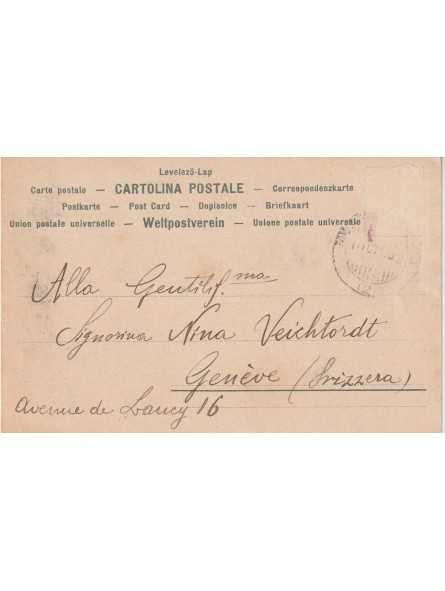 Levelező-Lap
Carte postale — CARTOLINA POSTALE — Correspondenzkarte
Postkarte — Post Card — Dopisnice — Briefkaart
Union postale universelle — Weltpostverein — Unione postale universale
Alla Gentilif.ma
Signorina Nina Veichtordt
Genève (Svizzera)
Avenue de Lancy 16